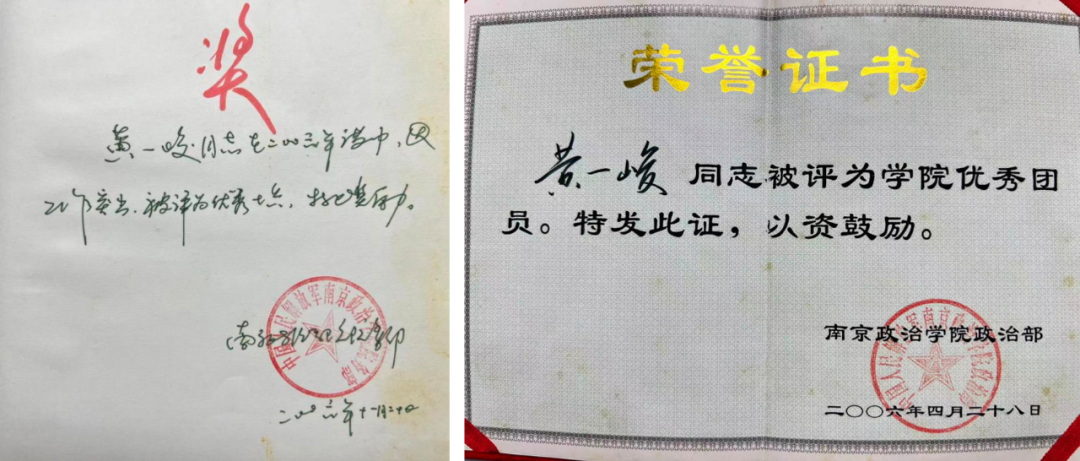 奖
黄一峻同志在二〇〇三年度中，因
工作突出，被评为优秀士兵，特此奖励。
二〇〇三年十一月二十日
荣誉证书
黄一峻 同志被评为学院优秀团
员。特发此证，以资鼓励。
南京政治学院政治部
中国人民解放军南京政治学院政治部
二〇〇六年四月二十八日